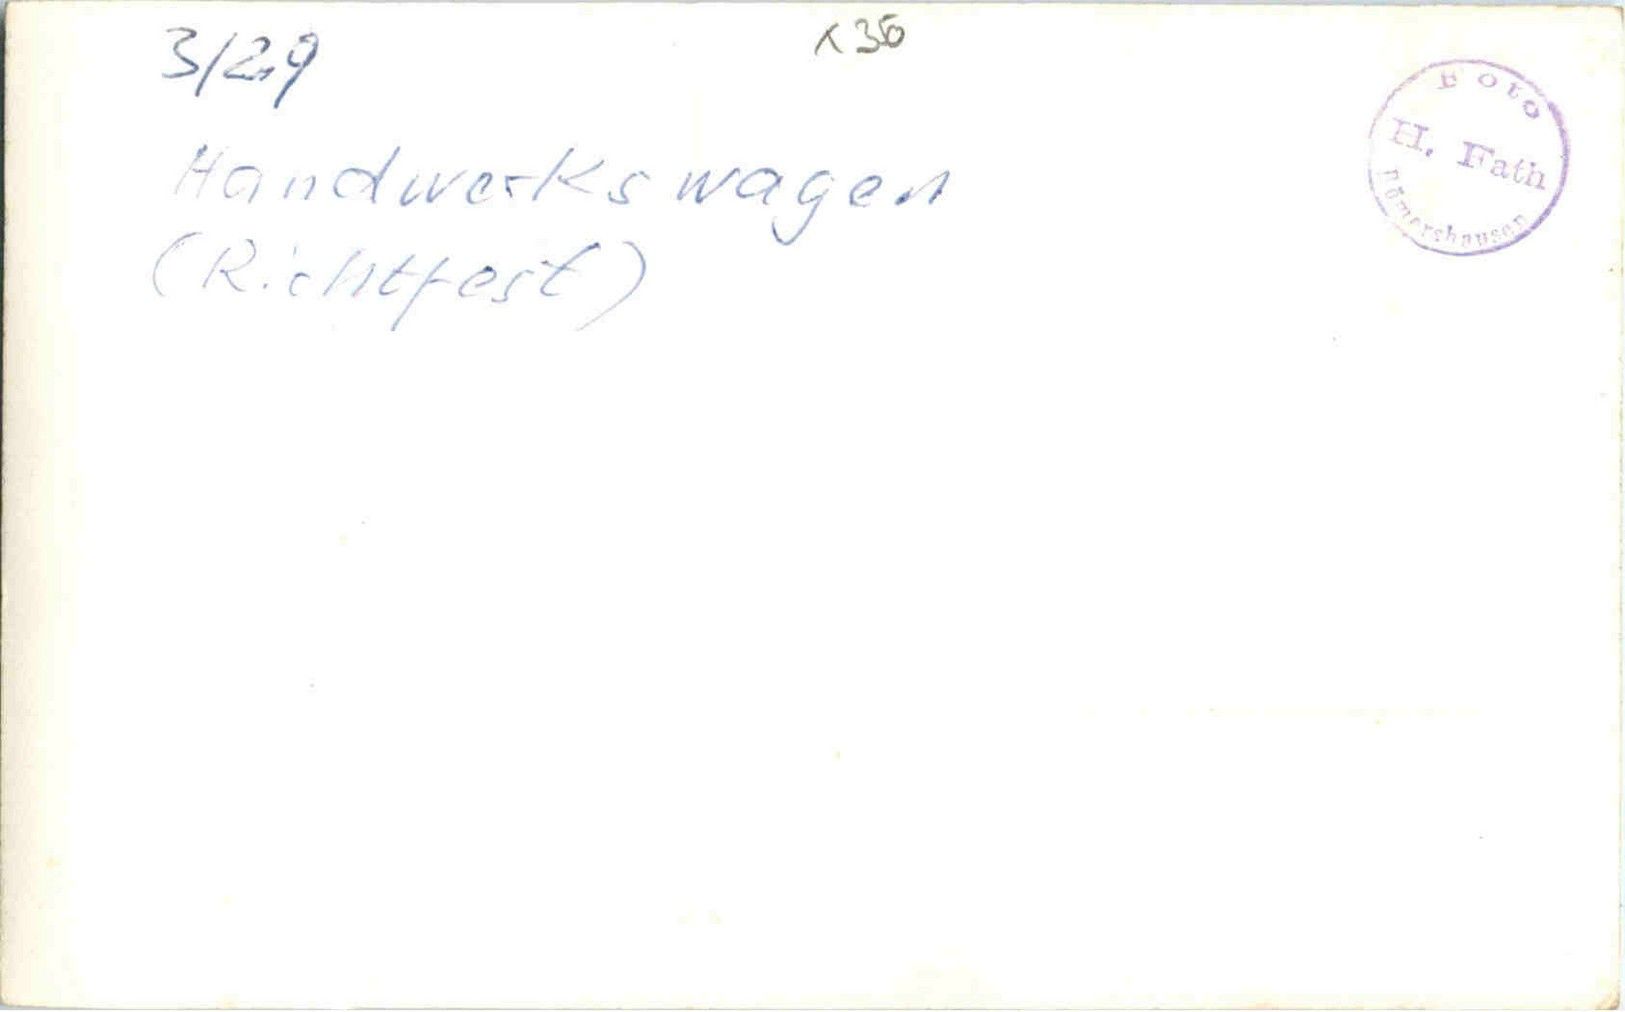 3/29
x 36
Handwerkswagen
(Richtfest)
Foto
H. Fath